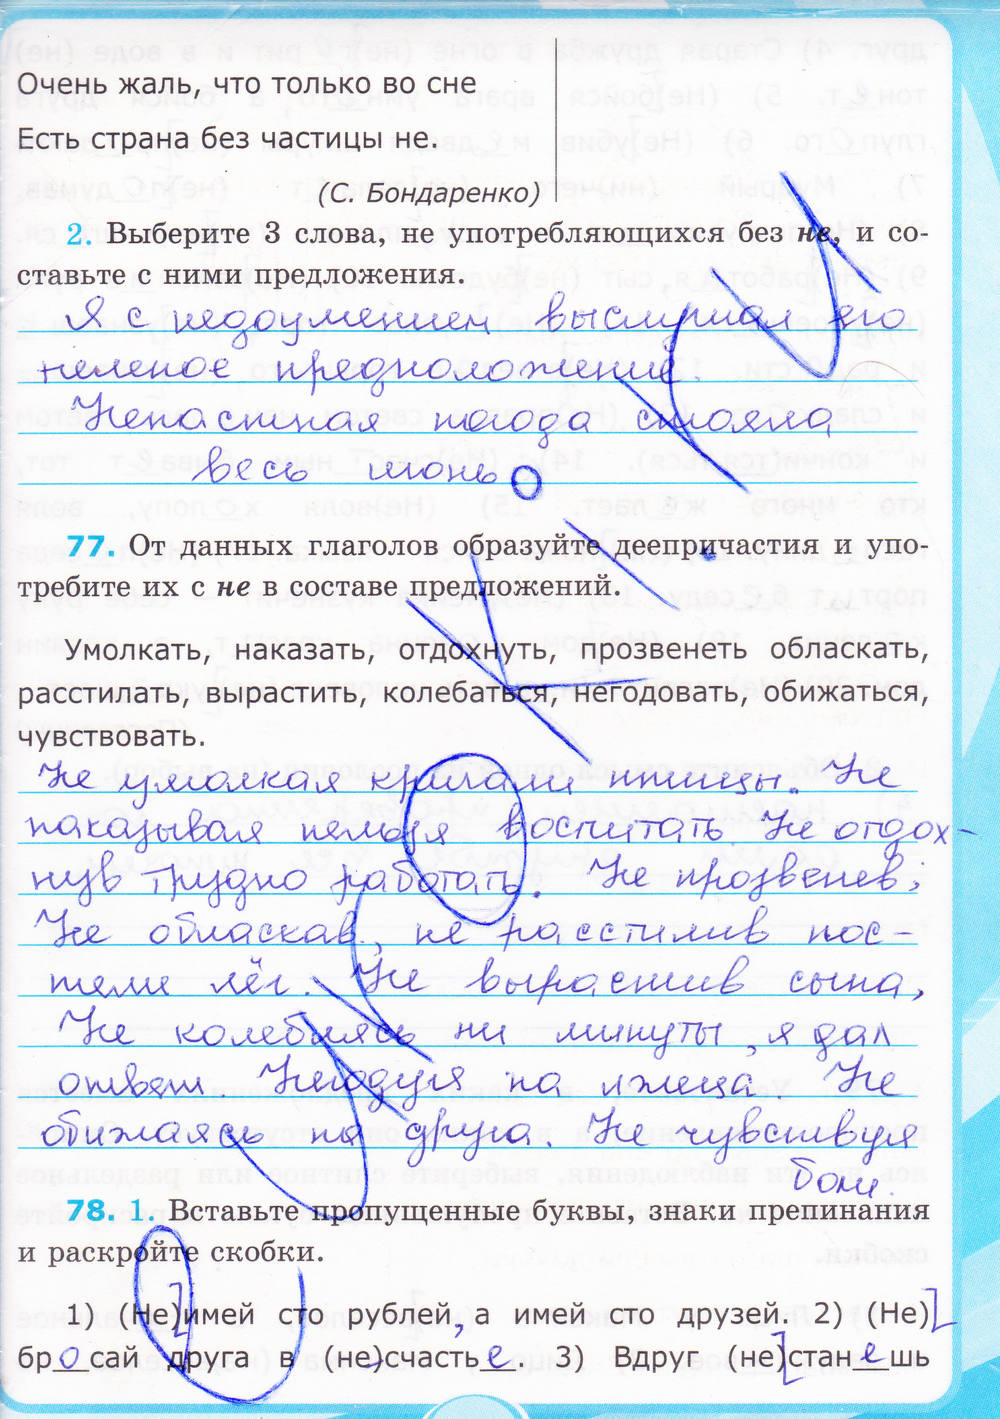 Очень жаль, что только во сне
Есть страна без частицы не.
(С. Бондаренко)
2. Выберите 3 слова, не употребляющихся без не, и со-
ставьте с ними предложения.
Я с недоумением выслушал его
нелепое предположение.
Ненастная погода стояла
весь июнь.
77. От данных глаголов образуйте деепричастия и упо-
требите их с не в составе предложений.
Умолкать, наказать, отдохнуть, прозвенеть обласкать,
расстилать, вырастить, колебаться, негодовать, обижаться,
чувствовать.
Не умолкая кричали птицы. Не
наказывая нельзя воспитать Не отдох-
нув трудно работать. Не прозвенев,
Не обласкав, не расстилив пос-
тели лёг. Не вырастив сына,
Не колеблясь ни минуты, я дал
ответ. Негодуя на лжеца. Не
обижаясь на друга. Не чувствуя
боли.
78. 1. Вставьте пропущенные буквы, знаки препинания
и раскройте скобки.
1) (Не)имей сто рублей, а имей сто друзей. 2) (Не)
бросай друга в (не)счастье. 3) Вдруг (не)станешь